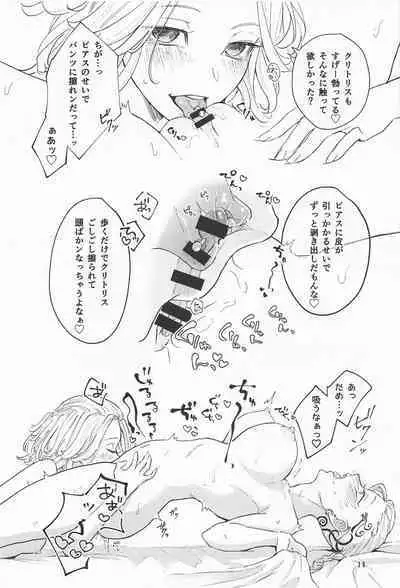 クリトリスも
すげー勃ってる♡
そんなに触って
欲しかった?
ちが…っ
ピアスのせいで
パンツに擦れンだって…ッ
ああッ♡
ピアスに皮が
引っかかるせいで
ずっと剥き出しだもんな♡
歩くだけでクリトリス
ごしごし擦られて
頭ばかンなっちゃうよなぁ♡
あっ
だめ…ッ
吸うなぁっ♡